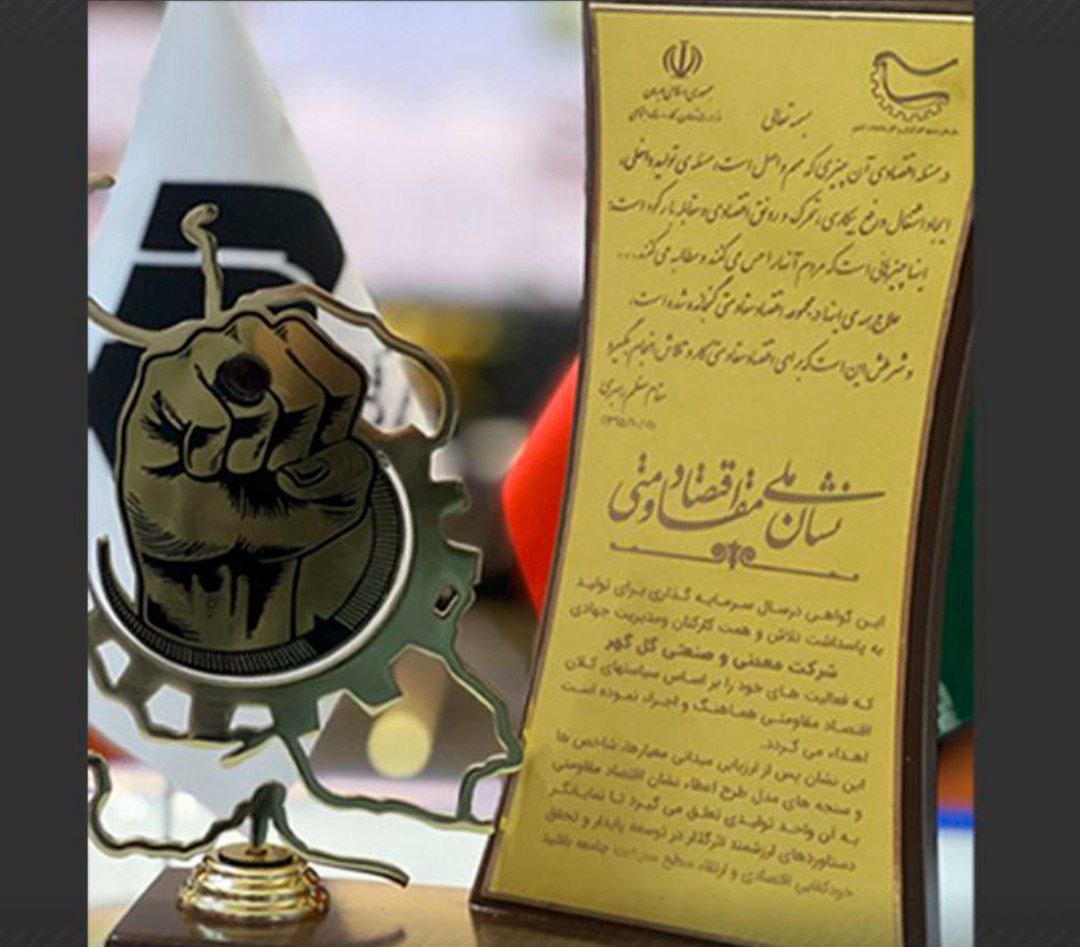 جمهوری اسلامی ایران
بسمه تعالی
در مسئله اقتصادی آن چیزی که مهم و اصل است، مسئله ی تولید داخلی،
ایجاد اشتغال و رفع بیکاری، تحرک و رونق اقتصادی و مقابله با رکود است؛
اینها چیزهائی است که مردم آنها را حس می کنند و مطالبه می کنند...
علاج همه ی اینها در مجموعه اقتصاد مقاومتی گنجانده شده است،
و شرطش این است که برای اقتصاد مقاومتی کار و تلاش انجام بگیرد
مقام معظم رهبری
نشان ملی اقتصاد مقاومتی
این گواهی در سال سرمایه گذاری برای تولید
به پاسداشت تلاش و همت کارکنان ومدیریت جهادی
شرکت معدنی و صنعتی گل گهر
که فعالیت های خود را بر اساس سیاستهای کلان
اقتصاد مقاومتی هماهنگ و اجراء نموده است
اهداء می گردد.
این نشان پس از ارزیابی میدانی معیارها، شاخص ها
و سنجه های مدل طرح اعطاء نشان اقتصاد مقاومتی
به آن واحد تولیدی تعلق می گیرد تا نمایانگر
دستاوردهای ارزشمند اثرگذار در توسعه پایدار و تحقق
خودکفایی اقتصادی و ارتقاء سطح جامعه باشید